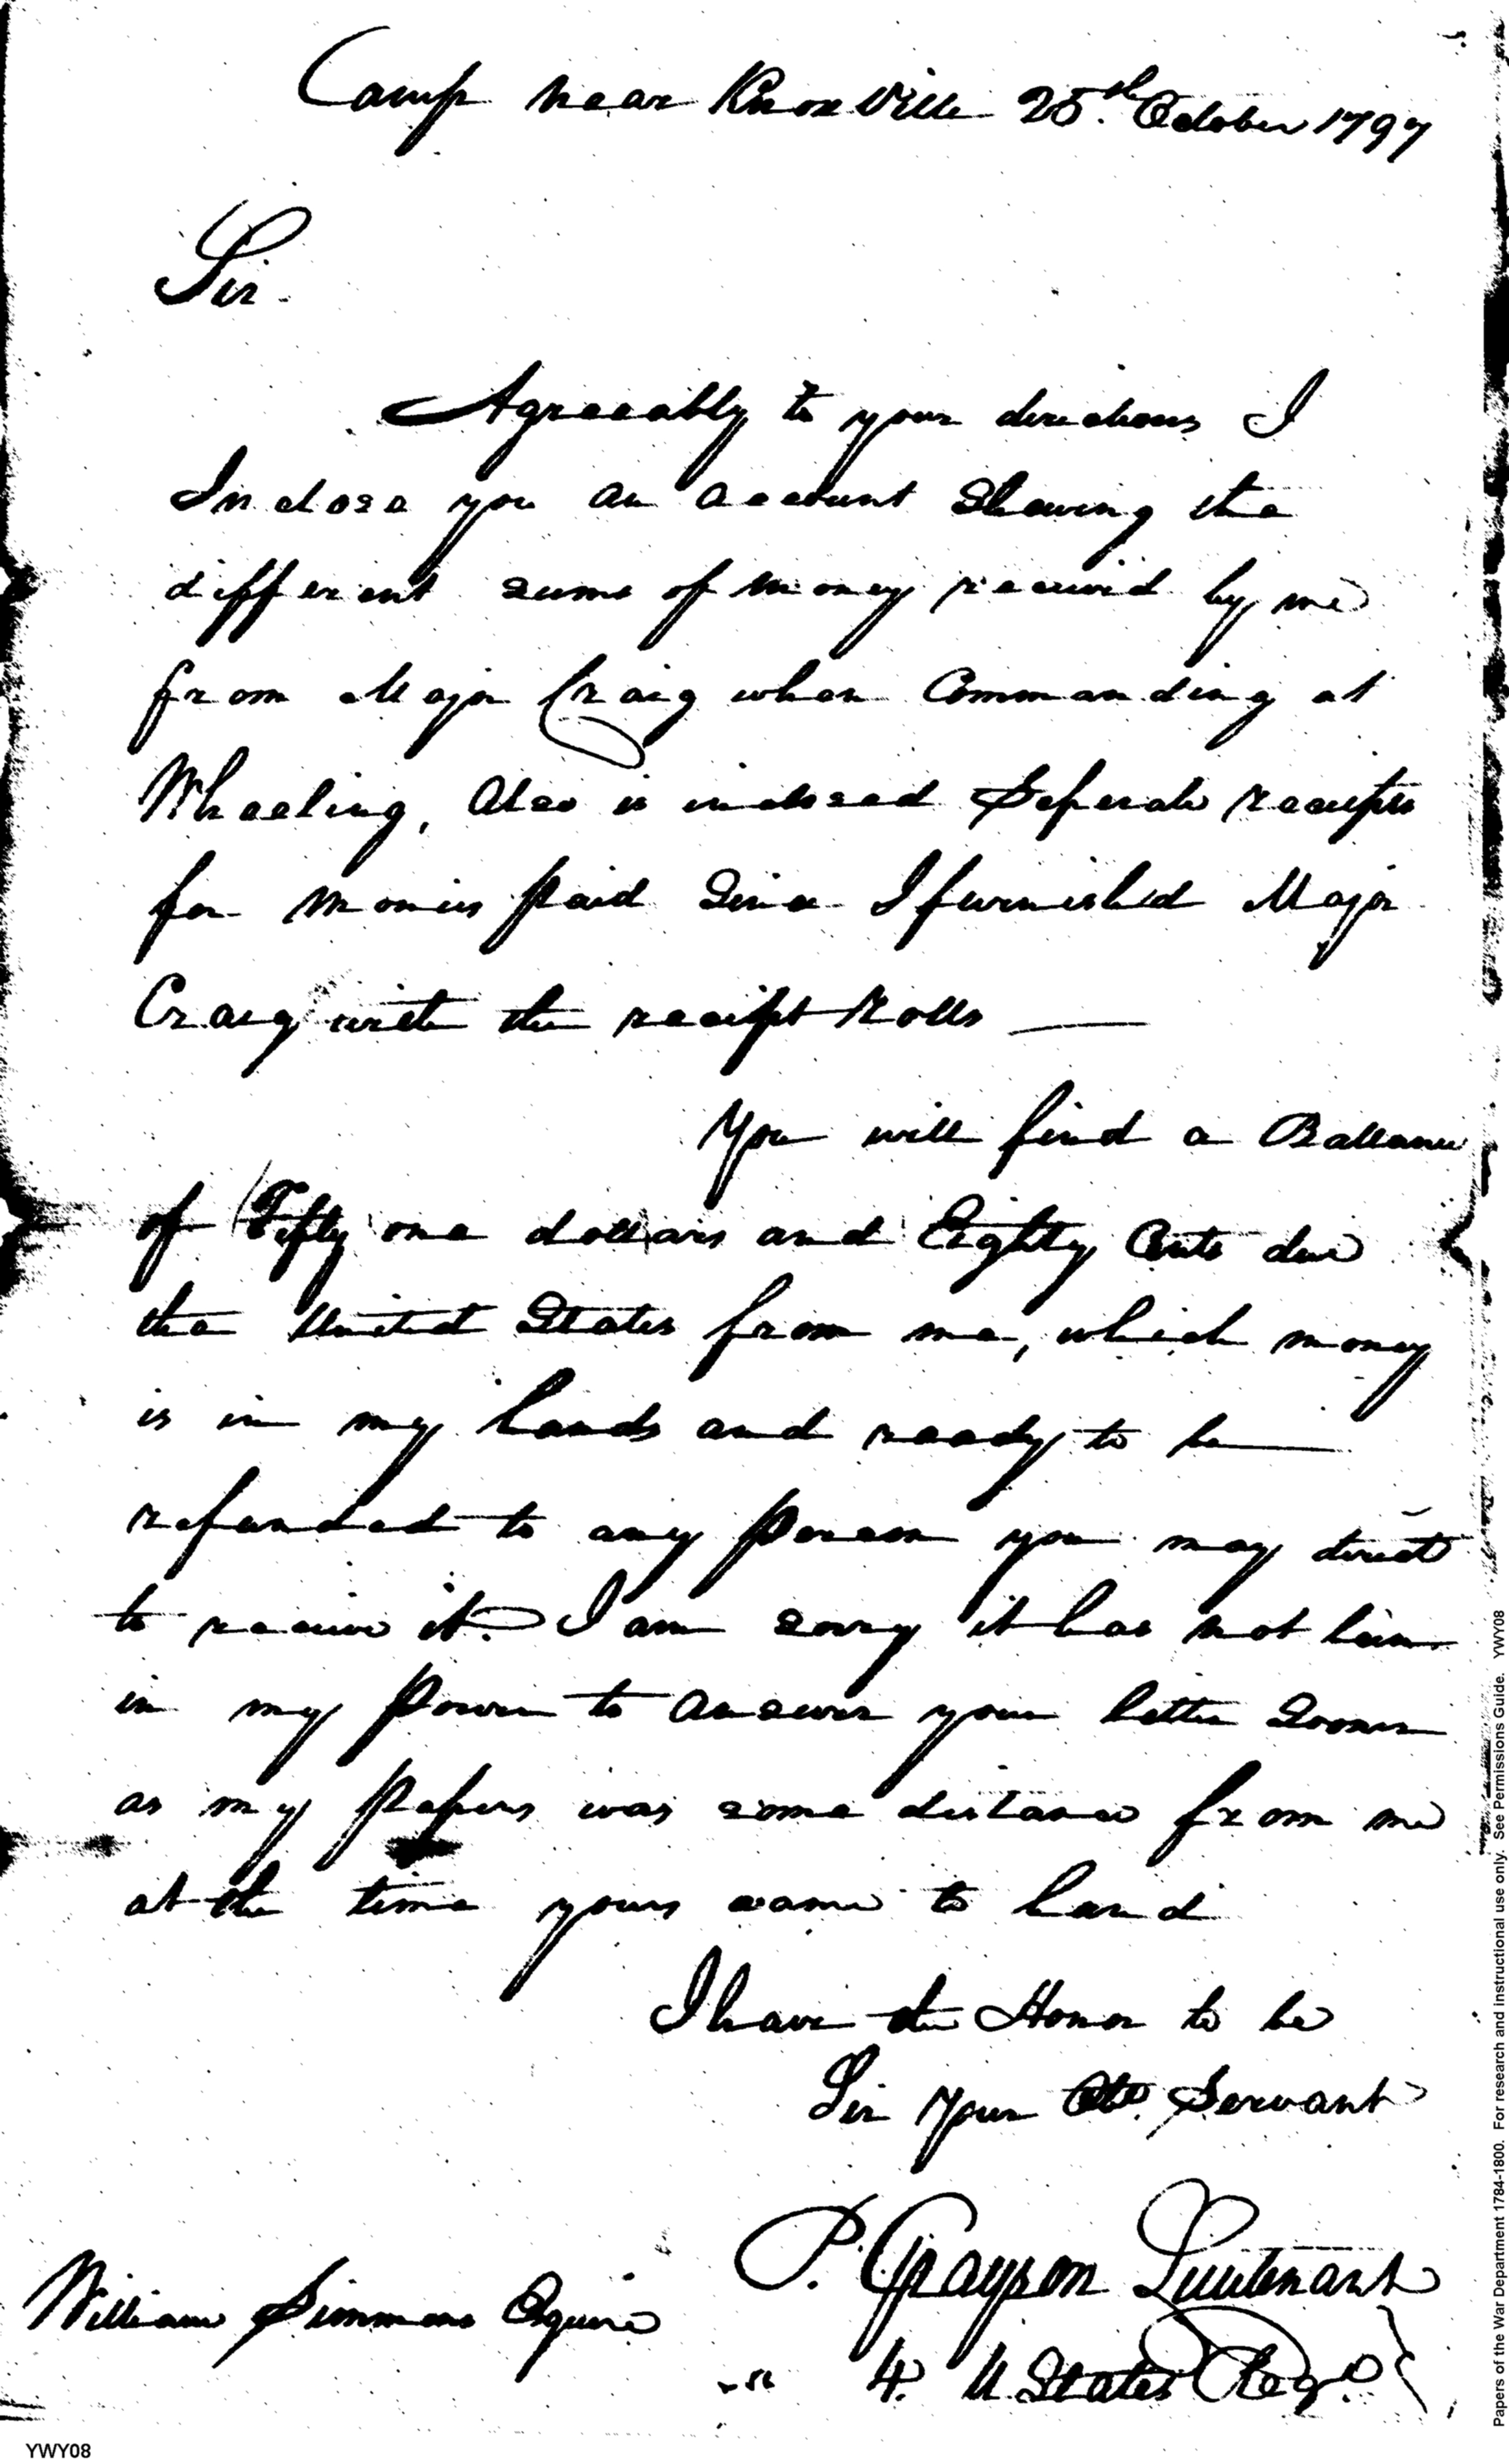 Camp near Knoxville 25th. October 1797
Sir.
Agreeably to your directions I
Inclose you an account Shewing the
different sums of money received by me
from Major Craig when Commanding at
Wheeling, Also is inclosed Seperate receipts
for monies paid Since I furnish'd Major
Craig with the receipt Rolls —
You will find a Ballance
of Fifty one dollars and Eighty Cents due
the United States from me, which money
is in my hands and ready to be
refunded to any person you may direct
to receive it. I am sorry it has not been
in my power to answer your letter Sooner
as my papers was some distance from me
at the time yours came to hand
I have the Honor to be
Sir Your Obt. Servant
P. Grayson Lieutenant
William Simmons Esquire
4. U States Regt.
YWY08
Papers of the War Department 1784-1800. For research and instructional use only. See Permissions Guide. YWY08